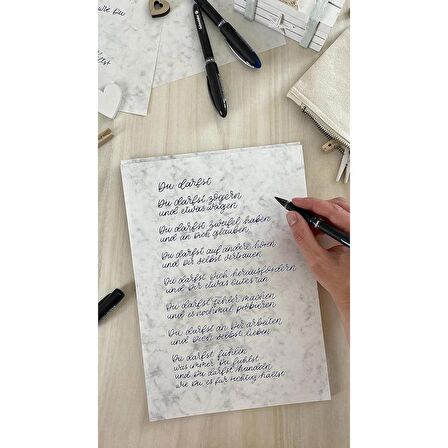 wie Du
Du darfst
Du darfst zögern
und etwas wagen
Du darfst Zweifel haben
und an Dich glauben
Du darfst auf andere hören
und Dir selbst vertrauen
Du darfst Dich herausfordern
und Dir etwas Gutes tun
Du darfst Fehler machen
und es nochmal probieren
Du darfst an Dir arbeiten
und Dich selbst lieben
Du darfst fühlen
was immer Du fühlst
und Du darfst handeln
wie Du es für richtig hältst